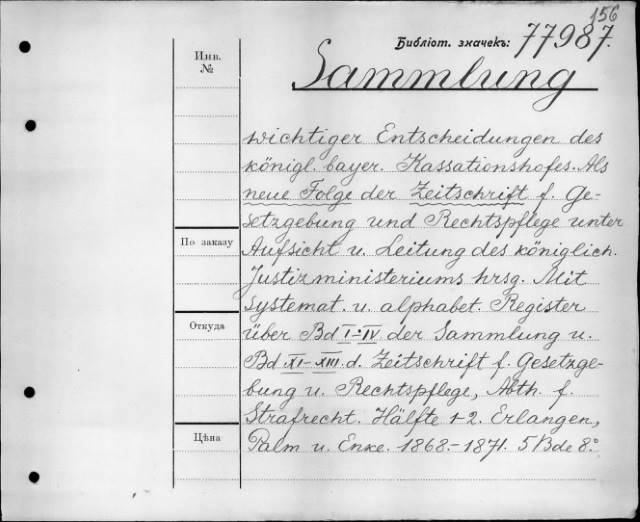 156
Библіот. значекъ: 77987.
Инв.
№
Sammlung
wichtiger Entscheidungen des
königl. bayer. Kassationshofes. Als
neue Folge der Zeitschrift f. Ge-
setzgebung und Rechtspflege unter
По заказу
Aufsicht u. Leitung des königlich.
Justizministeriums hrsg. Mit
systemat. u. alphabet. Register
Откуда
über Bd I-IV der Sammlung u.
Bd XI-XIII d. Zeitschrift f. Gesetzge-
bung u. Rechtspflege, Abth. f.
Strafrecht. Hälfte 1-2. Erlangen,
Цѣна
Palm u. Enke. 1868.-1871. 5 Bde 8.°